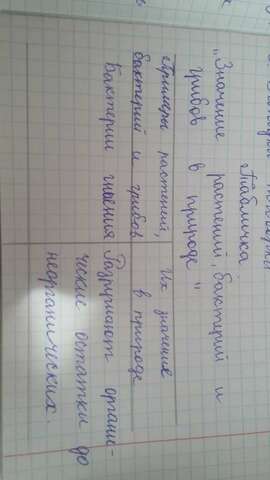 Табличка
"Значение растений, бактерий и
грибов в природе"
Примеры растений,
бактерий и грибов
Их значение
в природе
Бактерии гниения
Разрушают органи-
ческие остатки до
неорганических.